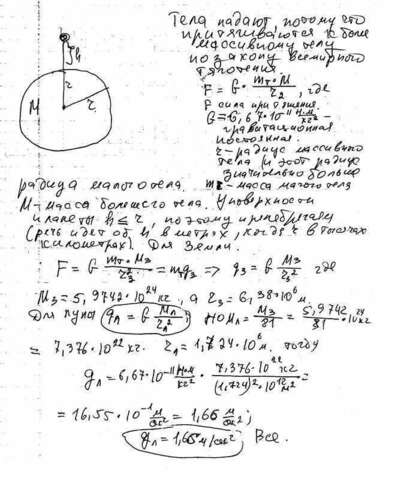 Тела падают потому что
притягиваются к более
массивному телу
по закону всемирного
тяготения.
F = G · mт·M / r², где
F сила притяжения.
G = 6,67·10⁻¹¹ Н·м²/кг² –
гравитационная
постоянная.
r – радиус массивного
тела (и этот радиус
значительно больше
радиуса малого тела. mт – масса малого тела
M – масса большего тела. У поверхности
планеты h ≤ r, поэтому пренебрегаем
(речь идет об h в метрах, когда r в тысячах
километрах). Для Земли.
F = G mт·Mз / rз² = mgз => gз = G Mз / rз² где
Mз = 5,9742·10²⁴ кг, а rз = 6,38·10⁶ м.
Для луны gл = G Mл / rл² но Mл = Mз / 81 = 5,9742 / 81 · 10²⁴ кг
= 7,376·10²² кг. rл = 1,724·10⁶ м. тогда
gл = 6,67·10⁻¹¹ Н·м²/кг² · 7,376·10²² кг / (1,724)²·10¹² м² =
= 16,55·10⁻¹ м/сек² = 1,66 м/сек²;
gл = 1,65 м/сек²; Все.
h
r
M
r